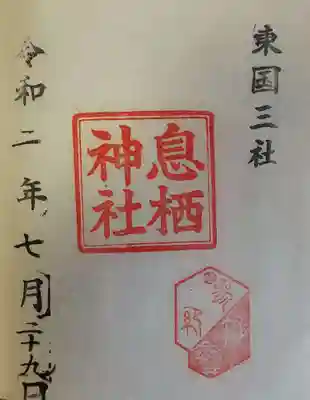 東国三社
息栖
神社
令和二年七月二十九日